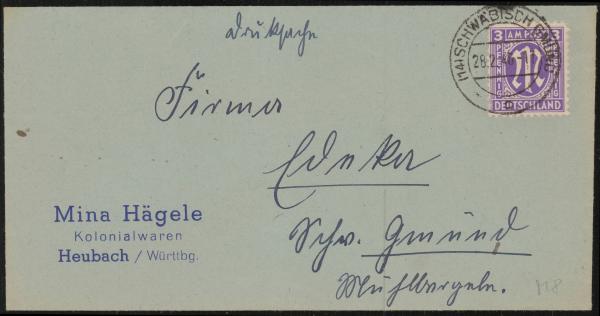 Drucksache
(14a) SCHWÄBISCH GMÜND
28.2.46
a
3 AM POST 3
PFENNIG PFENNIG
M
DEUTSCHLAND
Firma
Edeka
Schw. Gmünd
Mühlbergeln.
Mina Hägele
Kolonialwaren
Heubach / Württbg.